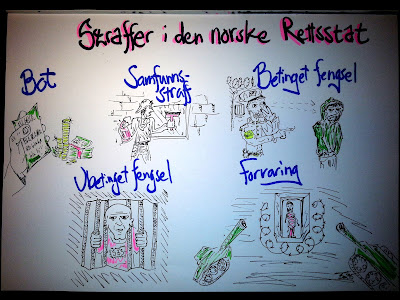 Straffer i den norske Rettsstat
Bot
Samfunns-
straff
Betinget fengsel
Ubetinget fengsel
Forvaring